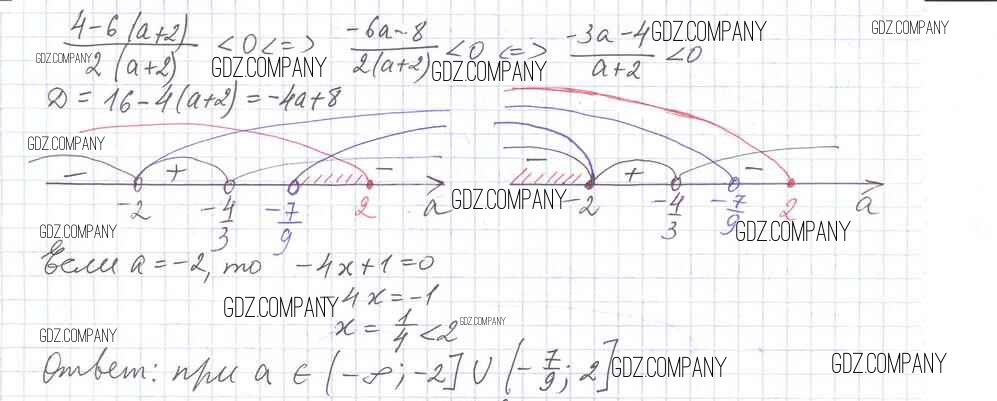 4-6(a+2)/2(a+2) <0 <=> -6a-8/2(a+2) <0 <=> -3a-4/a+2 <0 GDZ.COMPANY GDZ.COMPANY
GDZ.COMPANY GDZ.COMPANY GDZ.COMPANY
D = 16-4(a+2) = -4a+8
GDZ.COMPANY
- + - - + -
-2 -4/3 -7/9 2 a GDZ.COMPANY -2 -4/3 -7/9 2 a
GDZ.COMPANY GDZ.COMPANY
Если a = -2, то -4x+1=0
GDZ.COMPANY 4x=-1
x = 1/4 <2 GDZ.COMPANY
GDZ.COMPANY
Ответ: при a ∈ (-∞; -2] ∪ (-7/9; 2] GDZ.COMPANY GDZ.COMPANY